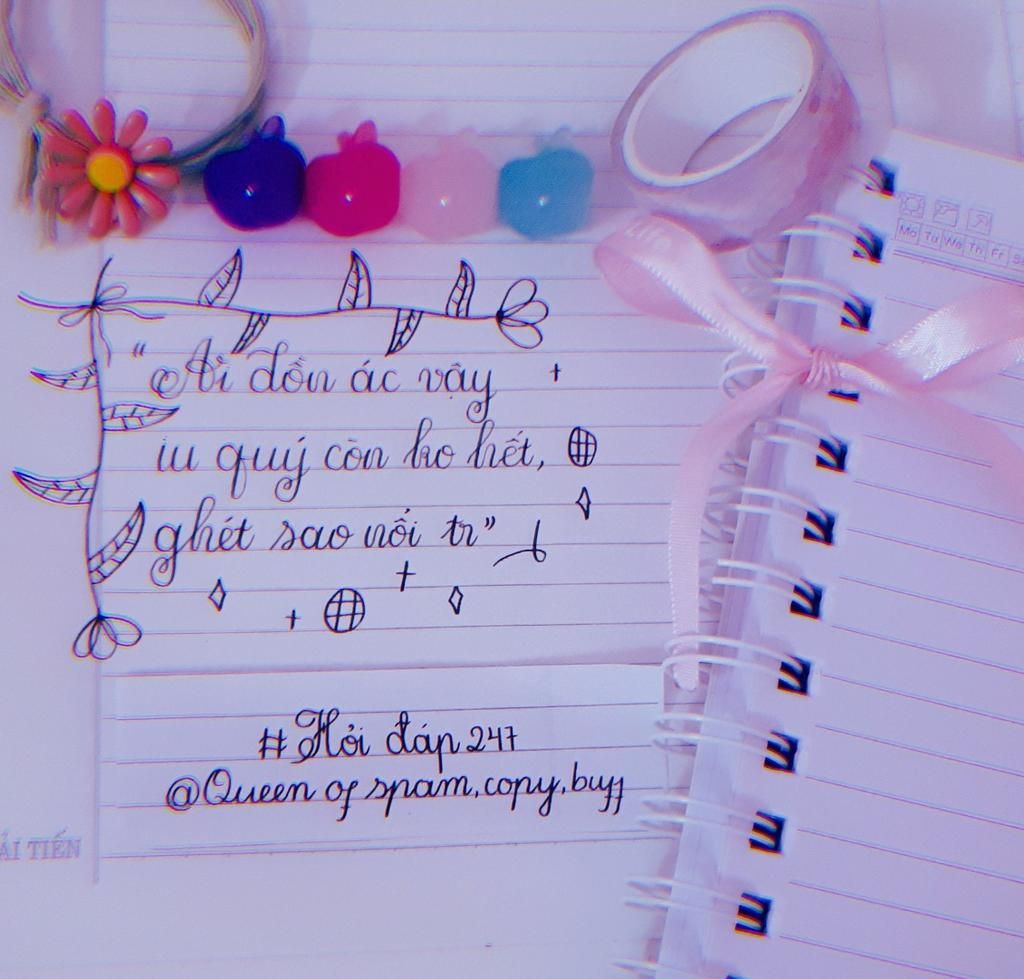 Life
Mo Tu We Th Fr S
"Ai đồn ác vậy
iu quý còn ko hết,
ghét sao nổi tr"
#Hỏi đáp 247
@Queen of spam,copy,buff
ẢI TIẾN